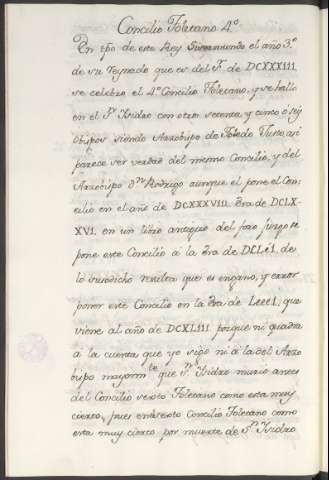 Concilio Toletano 4º.
En tpo de este Rey Sisenando el año 3º
de su reynado que es del Sr. de DCXXXIII
se celebro el 4º Concilio Toletano, y se hallo
en el Sn. Isidro con otros setenta, y cinco ó seis
obispos siendo Arzobispo de Toledo Justo, asi
parece ser verdad del mesmo Concilio, y del
Arzobispo Dn. Rodrigo aunque el pone el Con-
cilio en el año de DCXXXVIII. Era de DCLX-
XVI. en un libro antiguo del foro juzgo se
pone este Concilio á la Era de DCLXI. de
lo susodicho resulta que es engaño, y error
poner este Concilio en la Era de que
viene al año de DCXLIII porque ni quadra
a la cuenta que yo sigo ni á la del Arzo
bispo mayormte que Sn. Isidro murio antes
del Concilio sexto Toletano como esta muy
cierto, pues en el sexto Concilio Toletano como
esta muy cierto por muerte de Sn. Isidro